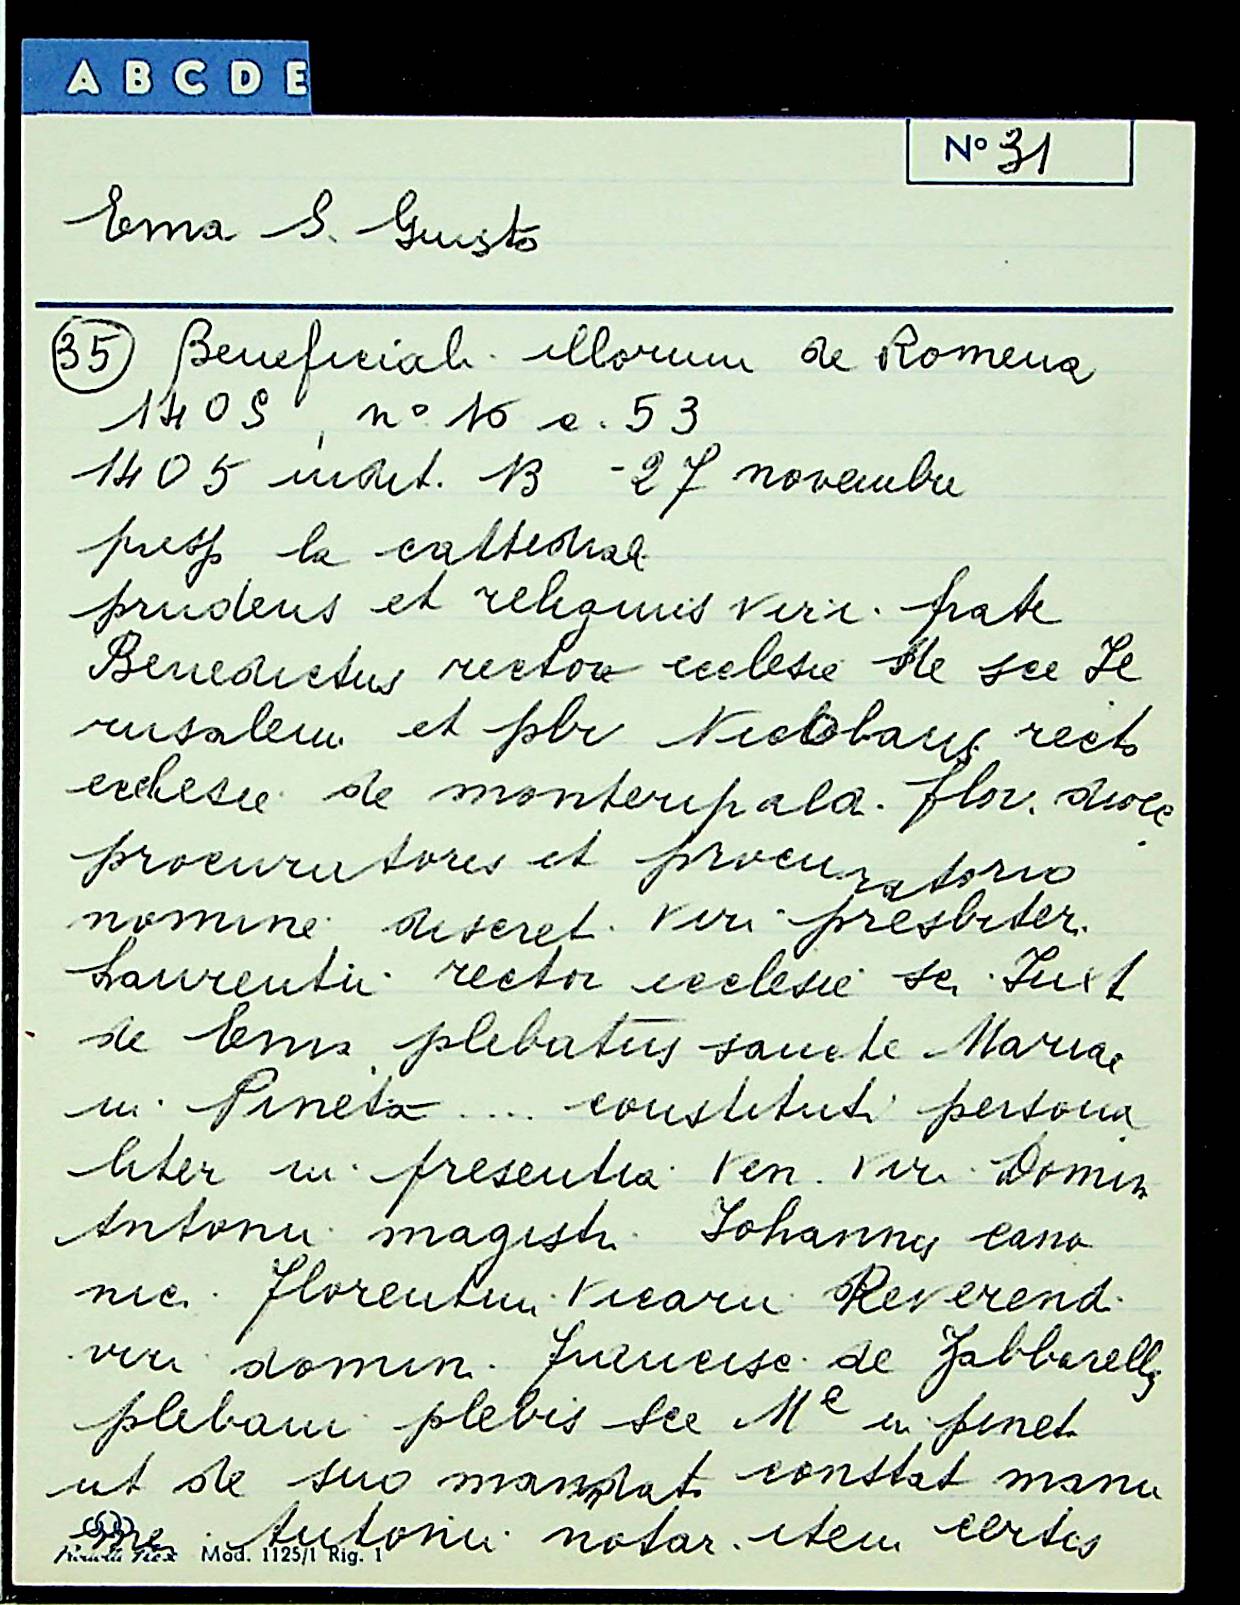 A B C D E
Nº 31
Ema S. Giusto
35 Beneficiali illorum de Romena
1409, nº 16 c. 53
1405 indit. 13 - 27 novembre
presso la cattedrale
prudens et religiuis viri frate
Benedictus rector ecclesie sce Je
rusalem et pbr Nicolaus recto
ecclesie de monteripaldi. flor. dioce
procuratores et procuratorio
nomine discret. viri presbiter.
Laurentii rector ecclesie sci Just
de Ema plebatus sancte Mariae
in Pineta .... constituti persona
liter in presentia ven. viri Domin
Antonii magistri Johannis cano
nic. florentini vicarii Reverend.
viri domin. Francisc. de Zabbarellis
plebani plebis sce Me in pinet
ut de suo mandato constat manu
Antonii notar. item certis
Mod. 1125/1 Rig. 1